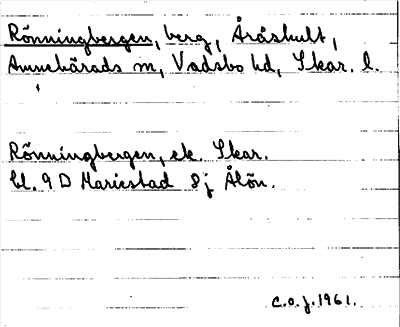 Rönningbergen, berg, Åråshult,
Annebärads m, Vadsbo hd, Skar. l.
Rönningbergen, ek. Skar.
bl. 9 D Mariestad 8j Ålön.
C.O.J. 1961.